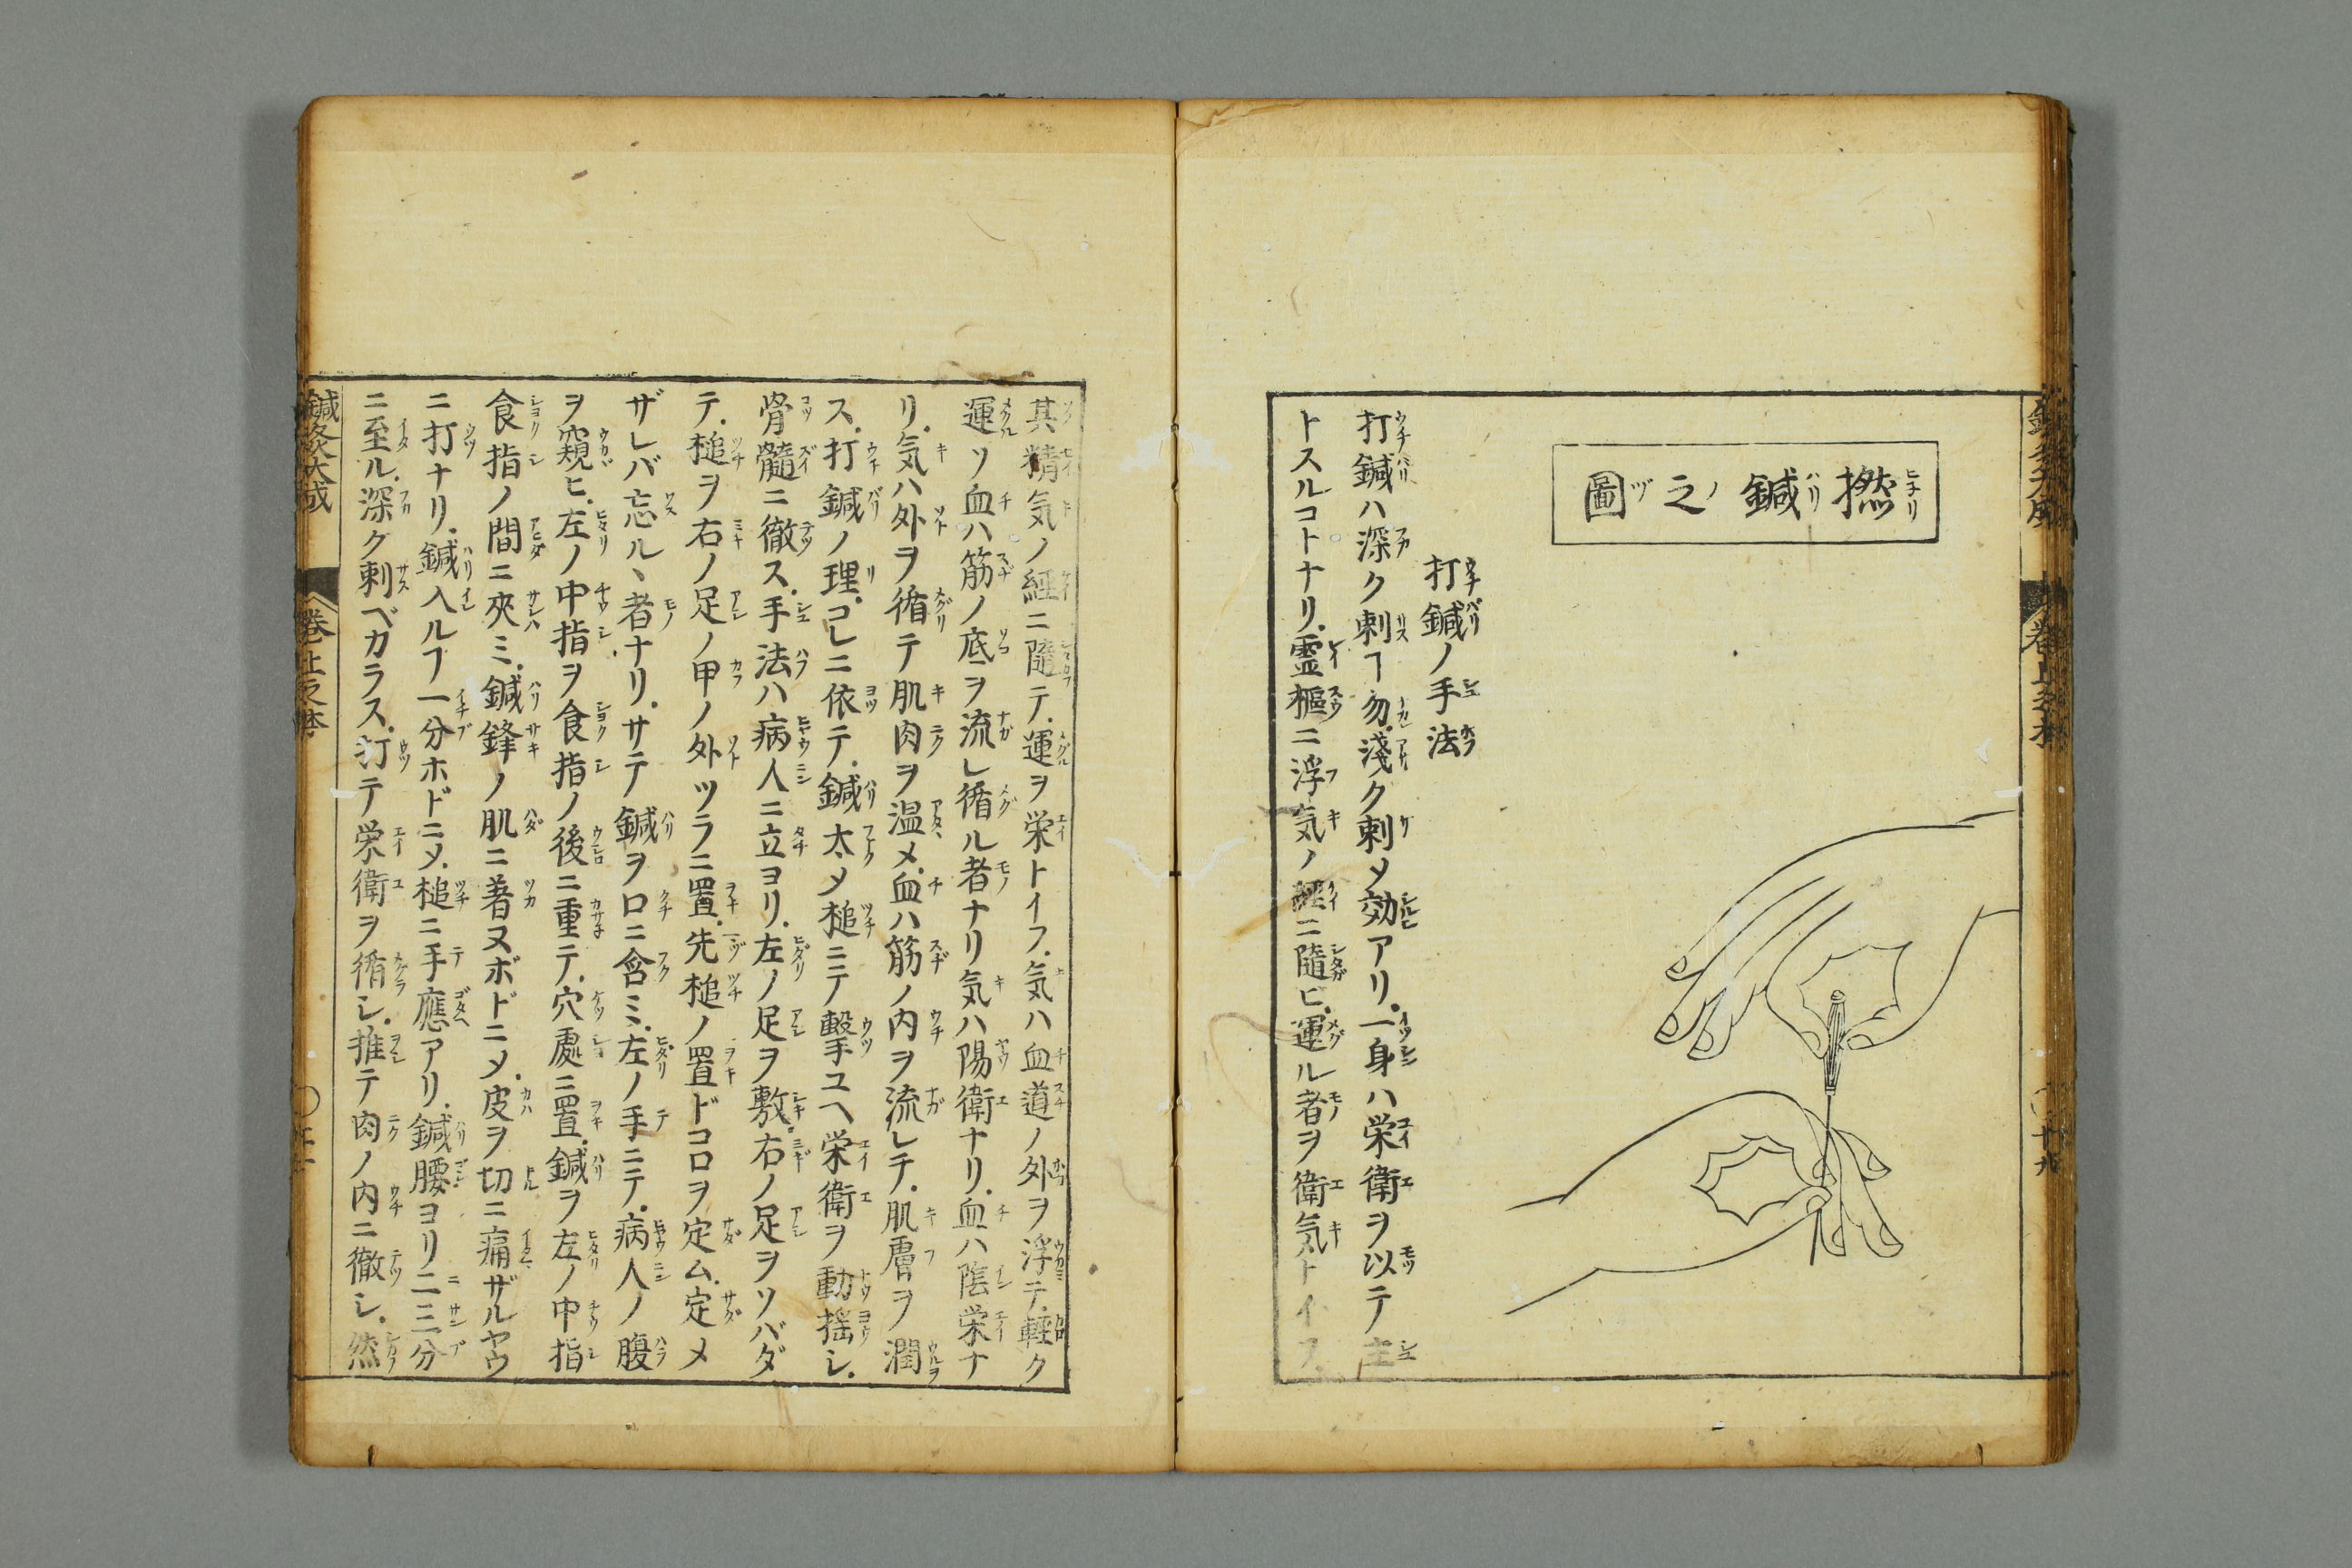 撚鍼之圖
打鍼ノ手法
打鍼ハ深ク刺ヿ勿淺ク刺〆効アリ一身ハ栄衛ヲ以テ主
トスルコトナリ霊樞ニ浮気ノ經ニ隨ヒ運ル者ヲ衛気トイフ
其精気ノ經ニ隨テ運ヲ栄トイフ気ハ血道ノ外ヲ浮テ輕ク
運ソ血ハ筋ノ底ヲ流レ循ル者ナリ気ハ陽衛ナリ血ハ陰栄ナ
リ気ハ外ヲ循テ肌肉ヲ温メ血ハ筋ノ内ヲ流レテ肌膚ヲ潤
ス打鍼ノ理コレニ依テ鍼太〆槌ニテ擊ユヘ栄衛ヲ動揺シ
骨髓ニ徹ス手法ハ病人ニ立ヨリ左ノ足ヲ敷右ノ足ヲソバダ
テ槌ヲ右ノ足ノ甲ノ外ツラニ置先槌ノ置ドコロヲ定ム定メ
ザレバ忘ルヽ者ナリサテ鍼ヲ口ニ含ミ左ノ手ニテ病人ノ腹
ヲ窺ヒ左ノ中指ヲ食指ノ後ニ重テ穴處ニ置鍼ヲ左ノ中指
食指ノ間ニ夾ミ鍼鋒ノ肌ニ著ヌホドニ〆皮ヲ切ニ痛ザルヤウ
ニ打ナリ鍼入ルヿ一分ホドニ〆槌ニ手應アリ鍼腰ヨリ二三分
ニ至ル深グ刺ベカラス打テ栄衛ヲ循シ推テ肉ノ内ニ徹シ然
鍼灸大成 卷上之本